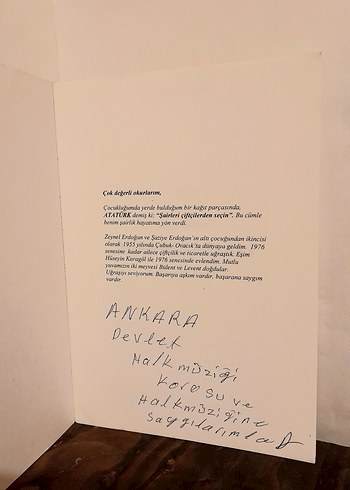 Çok değerli okurlarım,
Çocukluğumda yerde bulduğum bir kağıt parçasında,
ATATÜRK demiş ki: "Şairleri çiftçilerden seçin". Bu cümle
benim şairlik hayatıma yön verdi.
Zeynel Erdoğan ve Şaziye Erdoğan'ın altı çocuğundan ikincisi
olarak 1955 yılında Çubuk- Ovacık'ta dünyaya geldim. 1976
senesine kadar ailece çiftçilik ve ticaretle uğraştık. Eşim
Hüseyin Karagöl ile 1976 senesinde evlendim. Mutlu
yuvamızın iki meyvesi Bülent ve Levent doğdular.
Uğraşıyı seviyorum. Başarıya aşkım vardır, başarana saygım
vardır.
ANKARA
Devlet
Halk müziği
Korosu ve
Halkmüziğine
saygılarımla